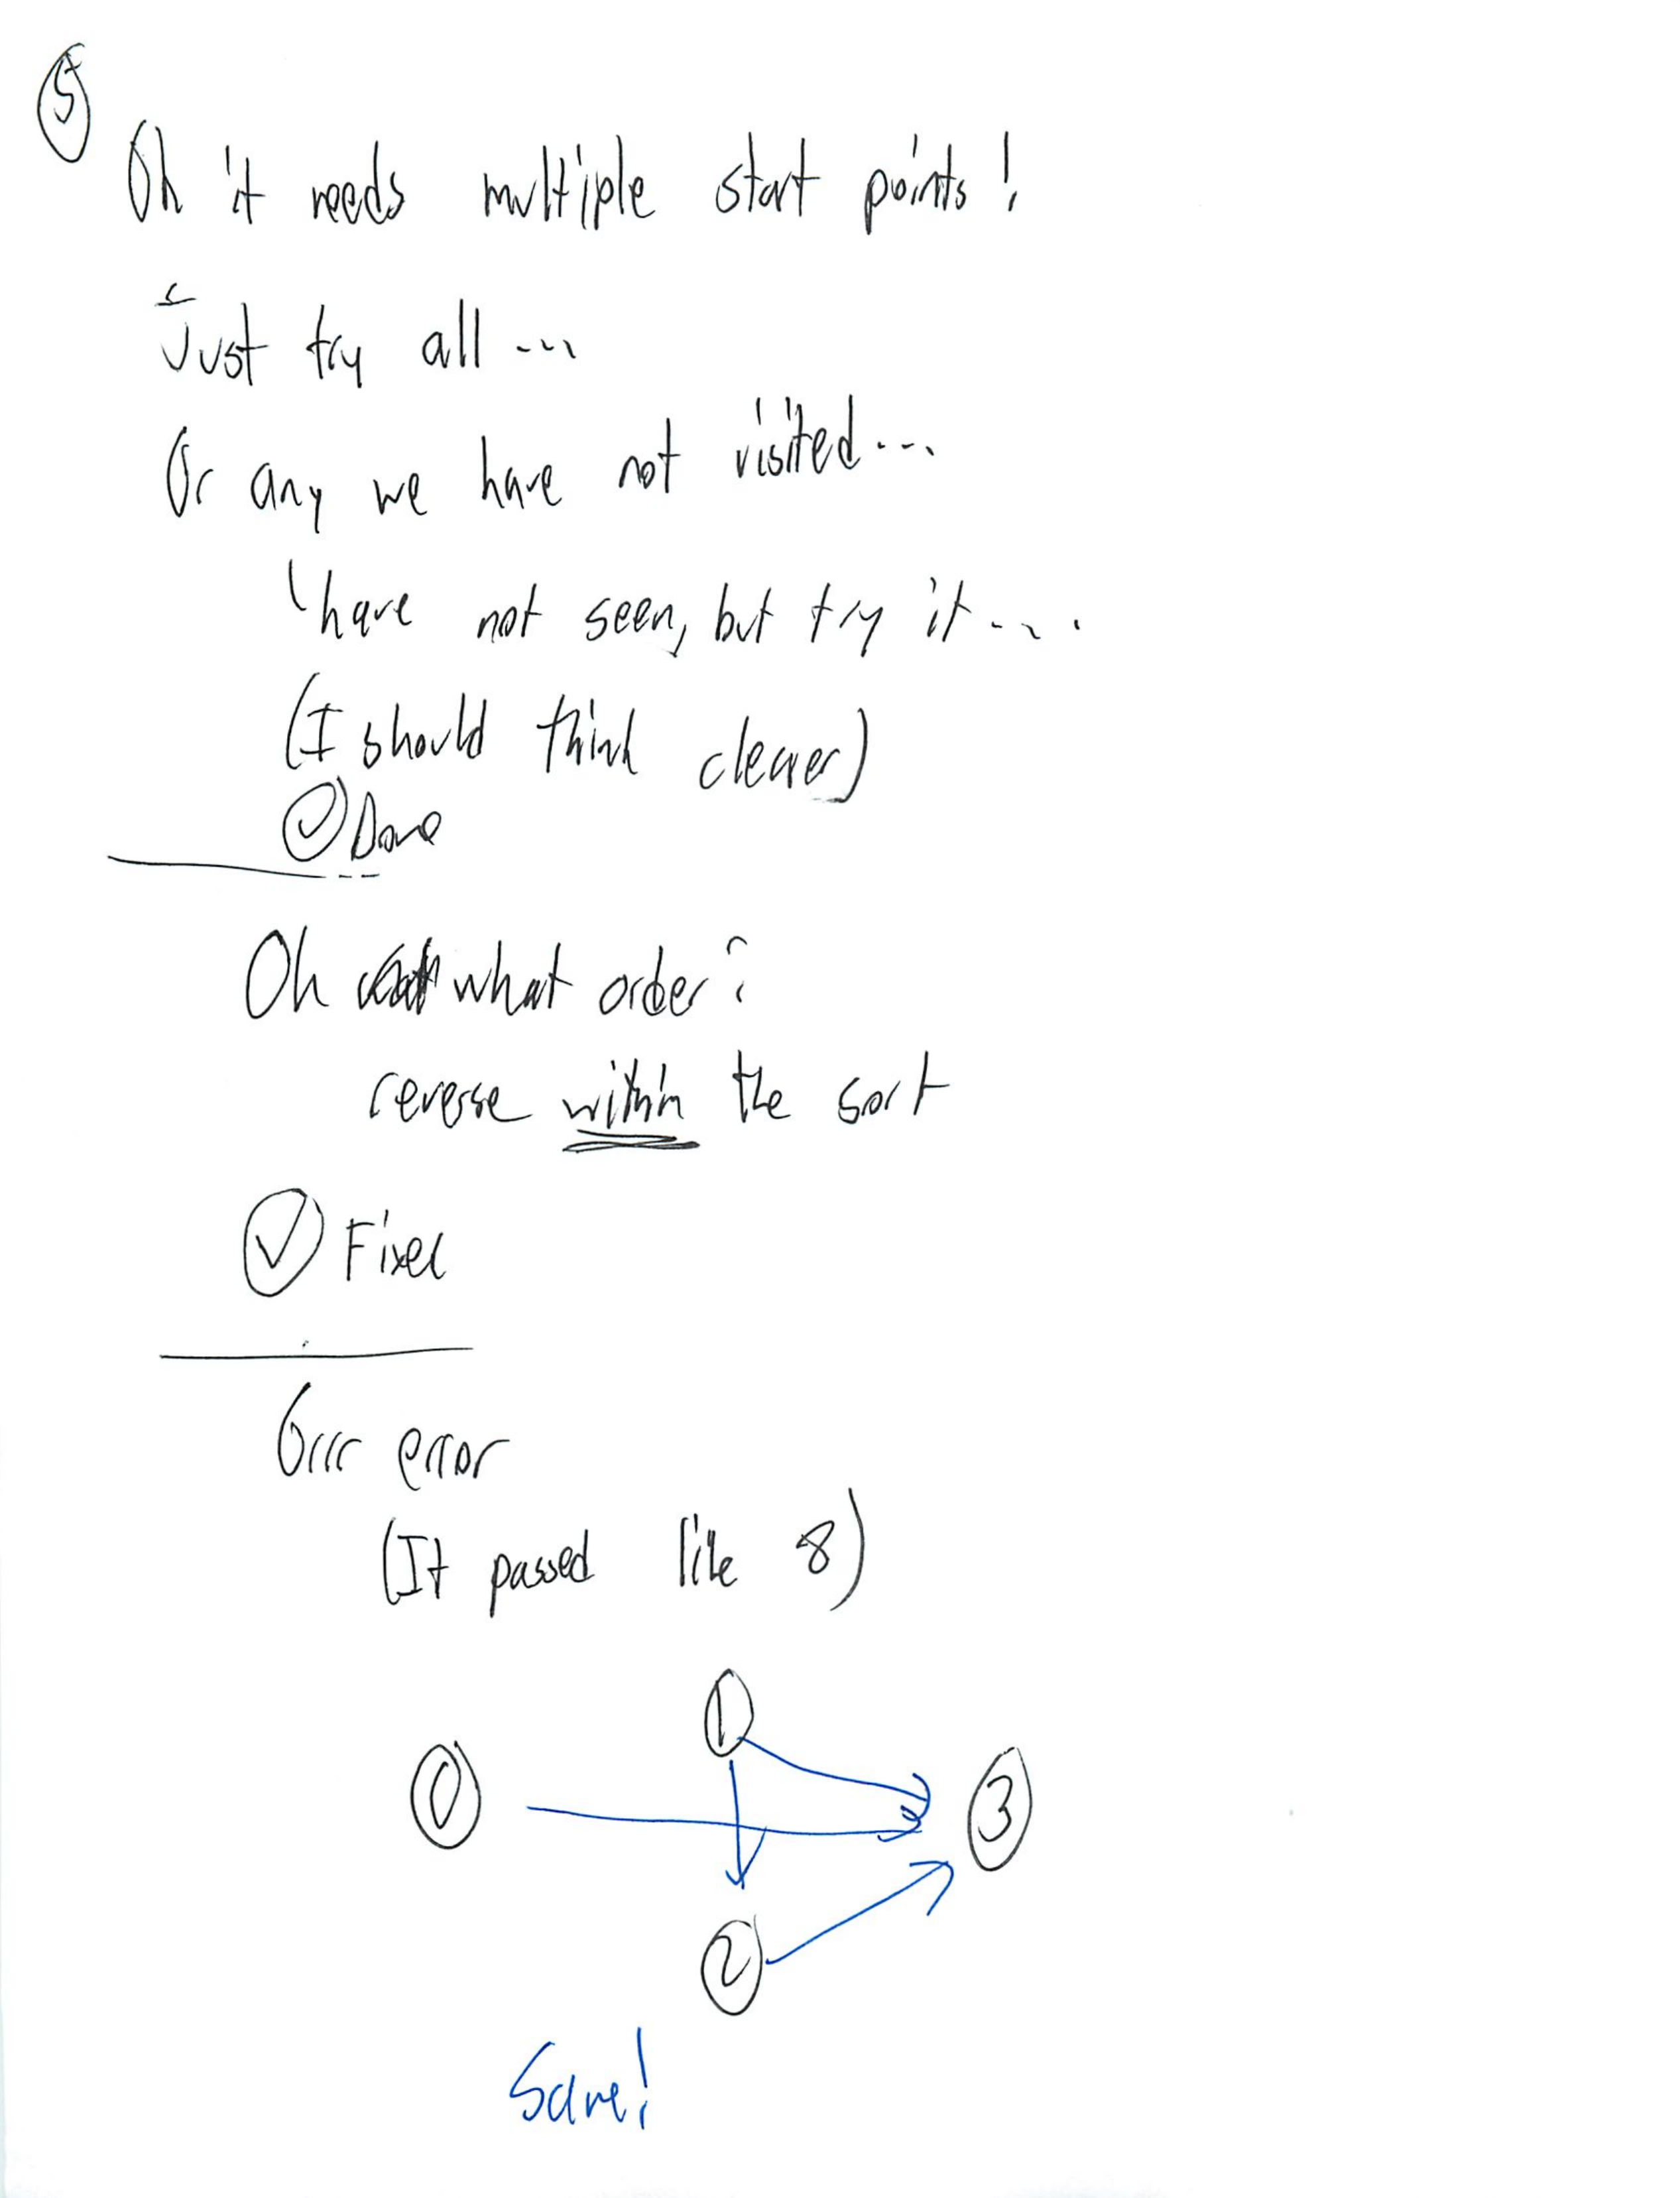 5
Oh it needs multiple start points!
Just try all ...
Or any we have not visited...
have not seen, but try it....
(I should think clearer)
Done
Oh what order?
reverse within the sort
Fixed
Grrr error
(It passed like 8)
1
0
3
2